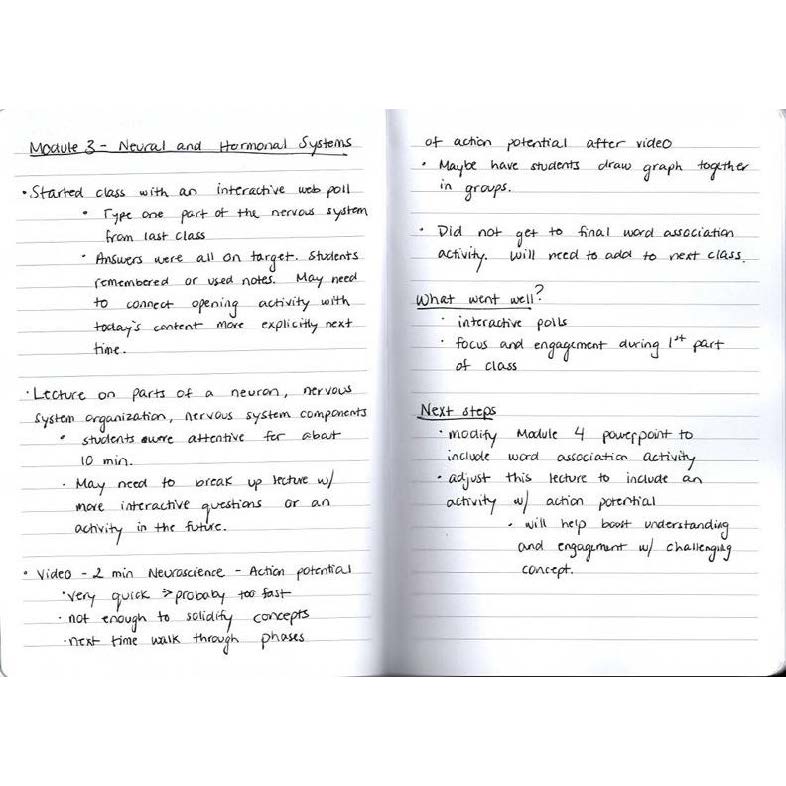 Module 3 - Neural and Hormonal Systems
• Started class with an interactive web poll
• Type one part of the nervous system
from last class
• Answers were all on target. Students
remembered or used notes. May need
to connect opening activity with
today's content more explicitly next
time.
• Lecture on parts of a neuron, nervous
system organization, nervous system components
• students were attentive for about
10 min.
• May need to break up lecture w/
more interactive questions or an
activity in the future.
• Video - 2 min Neuroscience - Action potential
• very quick → probaby too fast
• not enough to solidify concepts
• next time walk through phases
of action potential after video
• Maybe have students draw graph together
in groups.
• Did not get to final word association
activity. Will need to add to next class.
What went well?
• interactive polls
• focus and engagement during 1st part
of class
Next steps
• modify Module 4 powerpoint to
include word association activity
• adjust this lecture to include an
activity w/ action potential
• will help boost understanding
and engagement w/ challenging
concept.